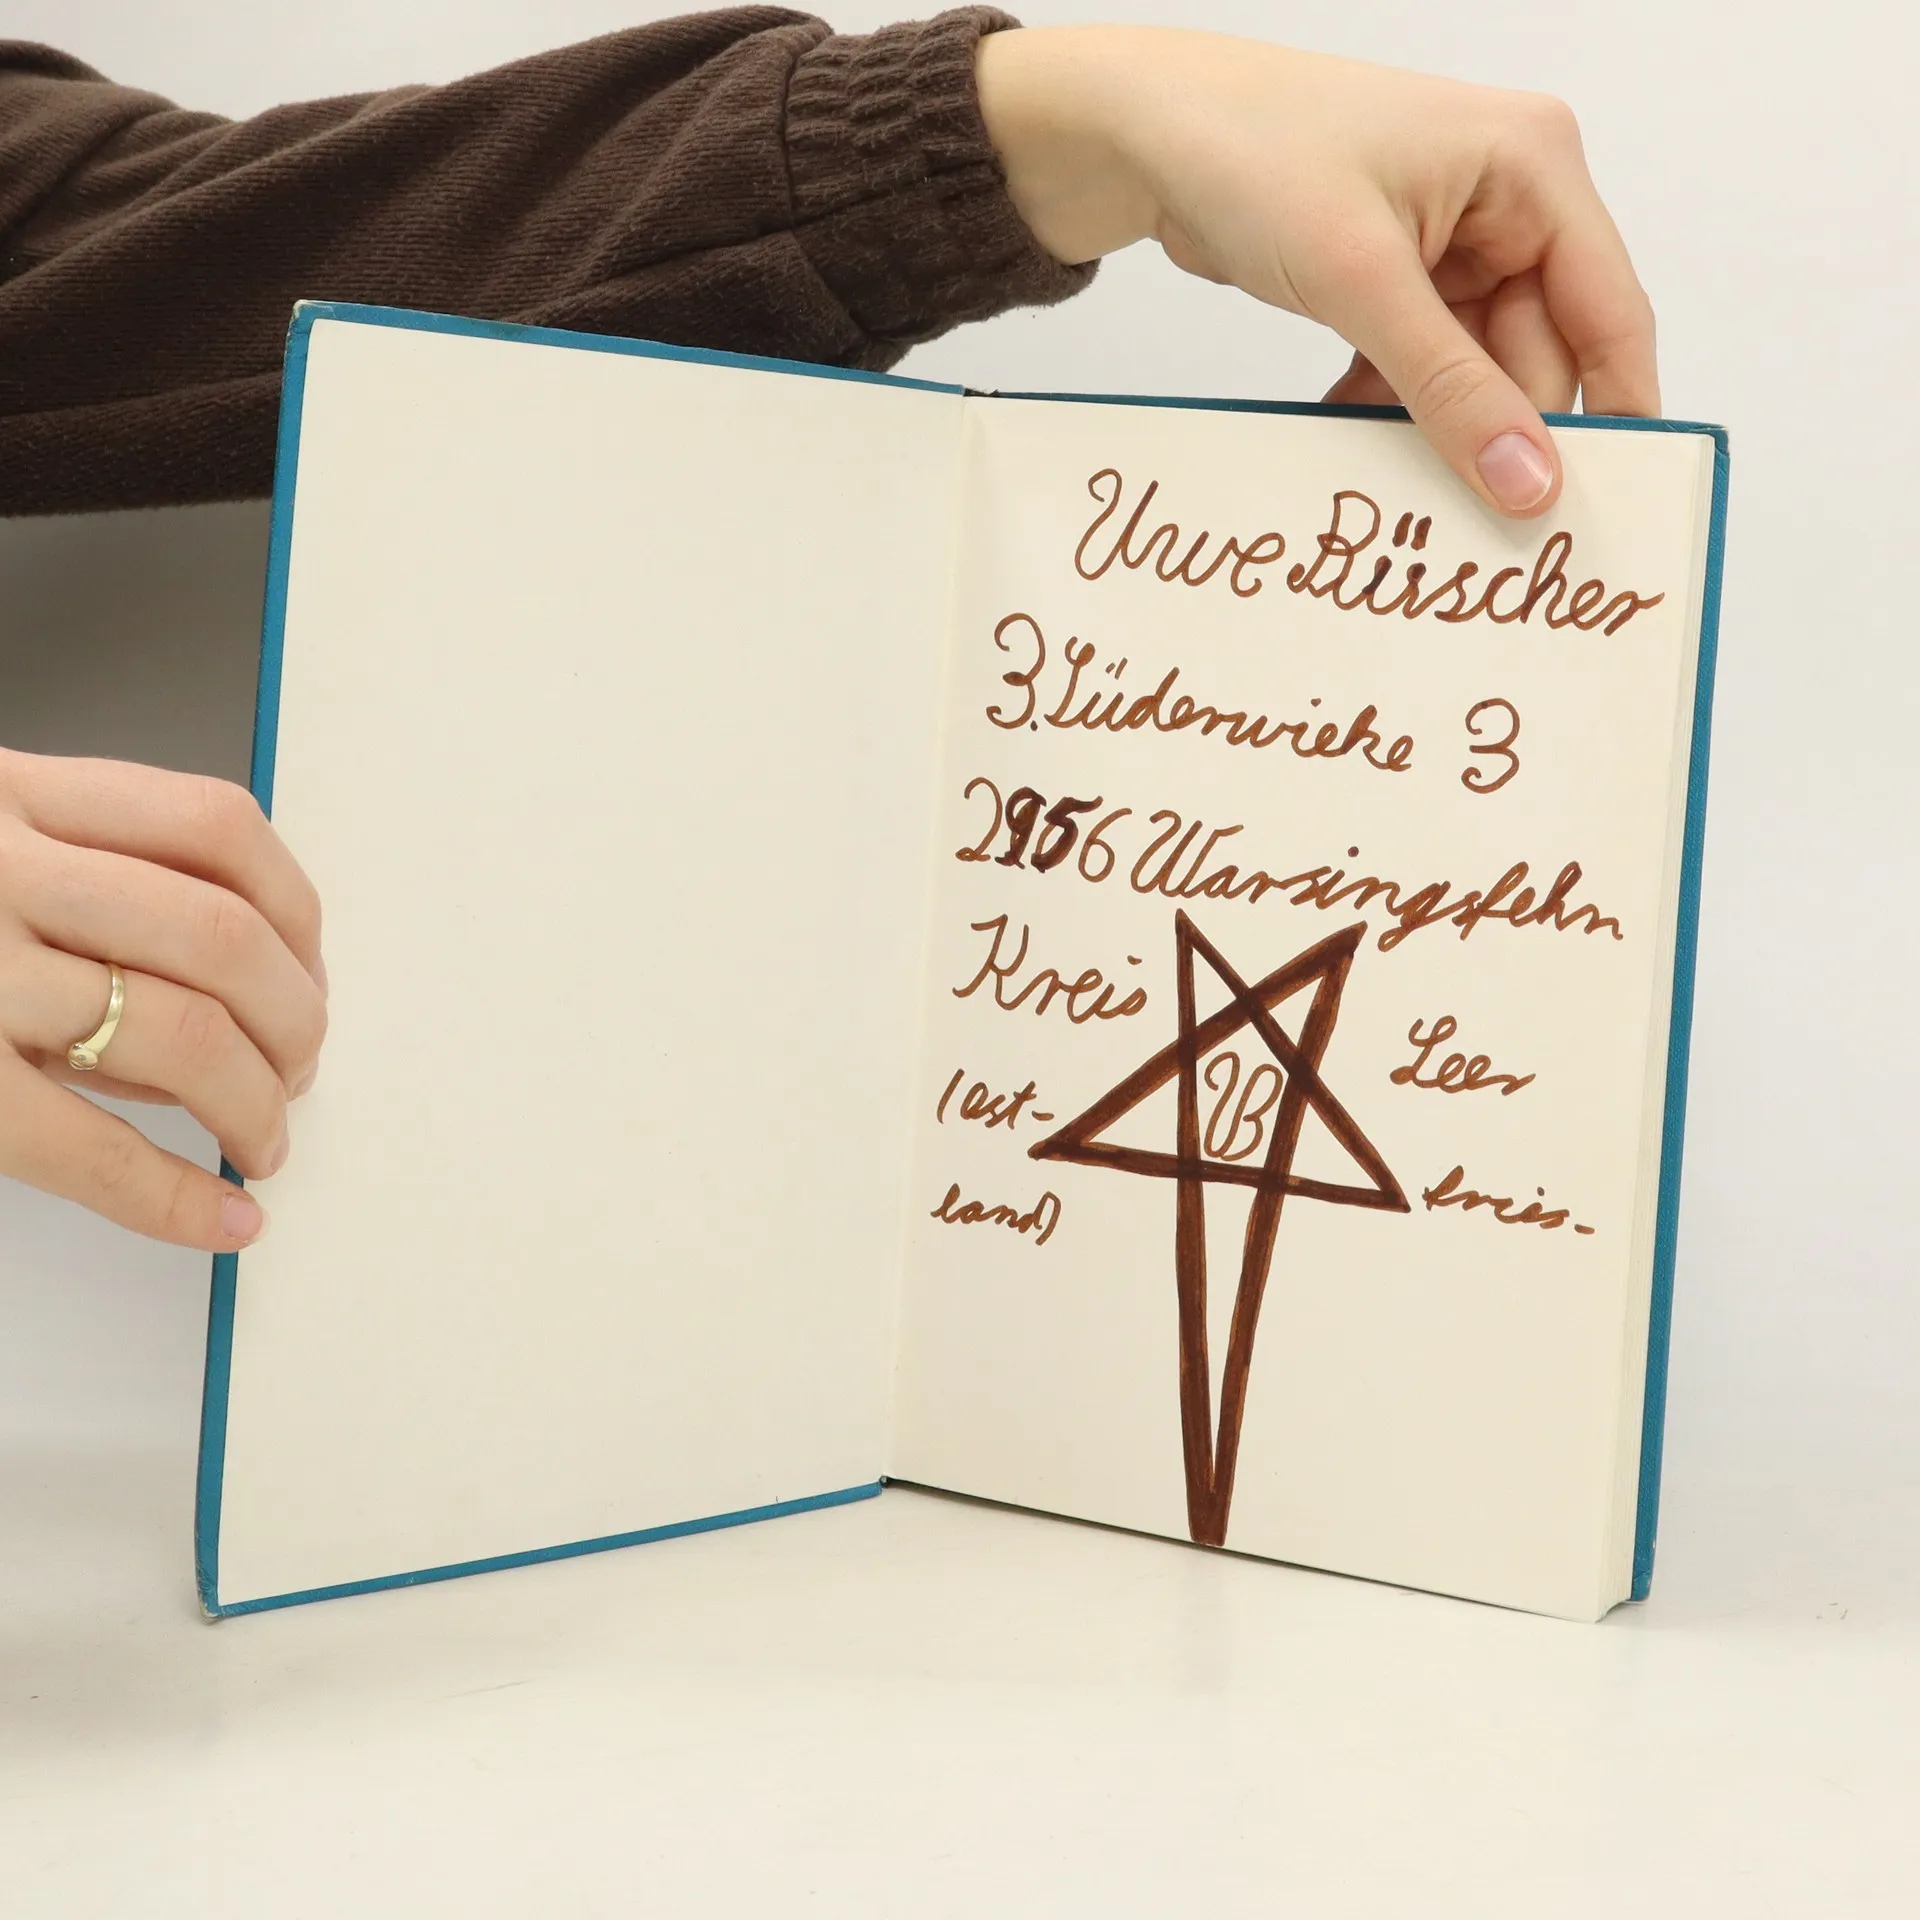 Uwe Büscher
3. Süderwieke 3
2956 Warsingsfehn
Kreis Leer
(ost- fries-
land)
UB